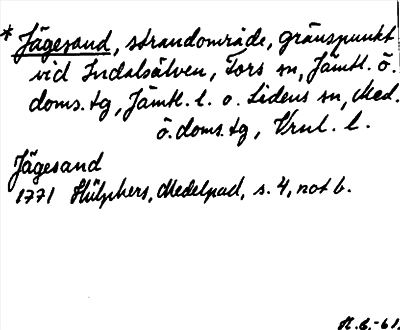 * Jägesand, strandområde, gränspunkt
vid Indalsälven, Fors sn, Jämtl. ö.
doms. tg, Jämtl. l. o. Lidens sn, Med.
ö. doms. tg, Vrnl. l.
Jägesand
1771 Hülphers, Medelpad, s. 4, not b.